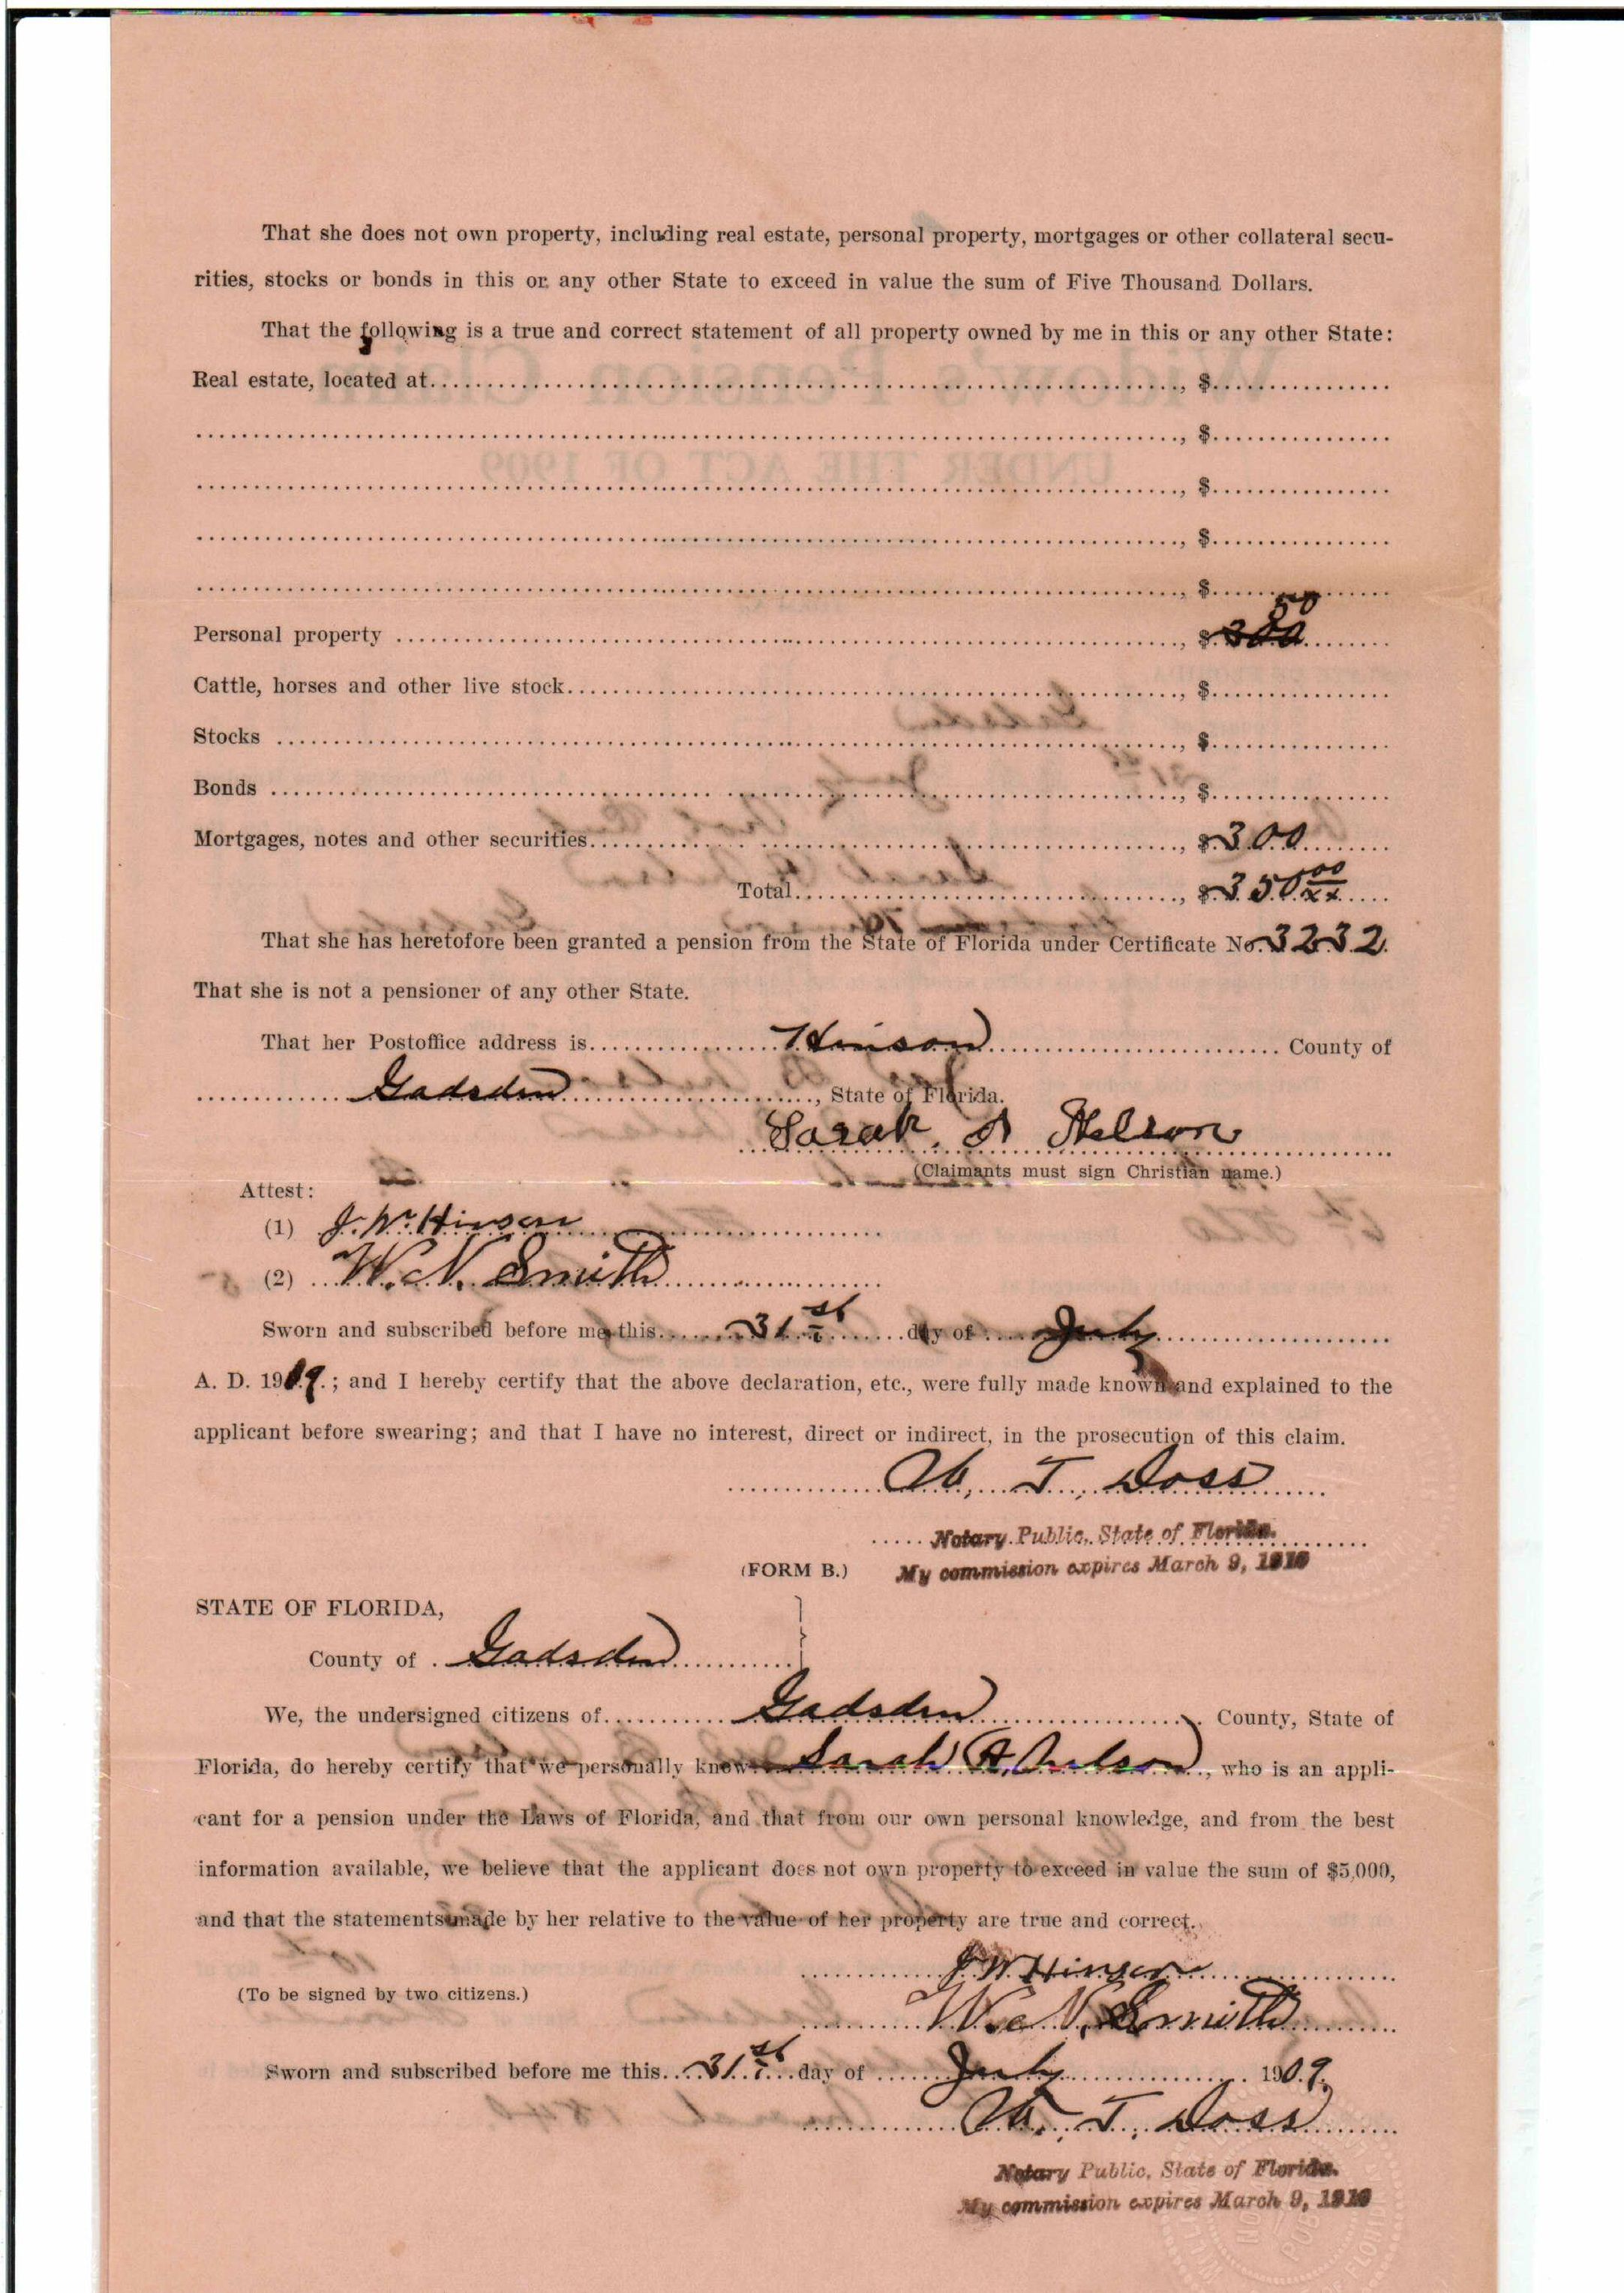 That she does not own property, including real estate, personal property, mortgages or other collateral secu-
rities, stocks or bonds in this or any other State to exceed in value the sum of Five Thousand Dollars.
That the following is a true and correct statement of all property owned by me in this or any other State:
Real estate, located at, $
, $
, $
, $
, $
50
Personal property, $300
Cattle, horses and other live stock, $
Stocks, $
Bonds, $
Mortgages, notes and other securities, $300
Total, $350 00/xx
That she has heretofore been granted a pension from the State of Florida under Certificate No. 3232.
That she is not a pensioner of any other State.
That her Postoffice address is Hinson County of
Gadsden, State of Florida.
Sarah A Nelson
(Claimants must sign Christian name.)
Attest:
(1) J. W. Hinson
(2) W. N. Smith
Sworn and subscribed before me this 31st day of July
A. D. 1909.; and I hereby certify that the above declaration, etc., were fully made known and explained to the
applicant before swearing; and that I have no interest, direct or indirect, in the prosecution of this claim.
W. T. Doss
Notary Public, State of Florida.
(FORM B.) My commission expires March 9, 1910
STATE OF FLORIDA,
County of Gadsden
We, the undersigned citizens of Gadsden County, State of
Florida, do hereby certify that we personally know Sarah A. Nelson, who is an appli-
cant for a pension under the Laws of Florida, and that from our own personal knowledge, and from the best
information available, we believe that the applicant does not own property to exceed in value the sum of $5,000,
and that the statements made by her relative to the value of her property are true and correct.
J W Hinson
(To be signed by two citizens.)
W. N. Smith
Sworn and subscribed before me this 31st day of July 1909.
W. T. Doss
Notary Public, State of Florida.
My commission expires March 9, 1910